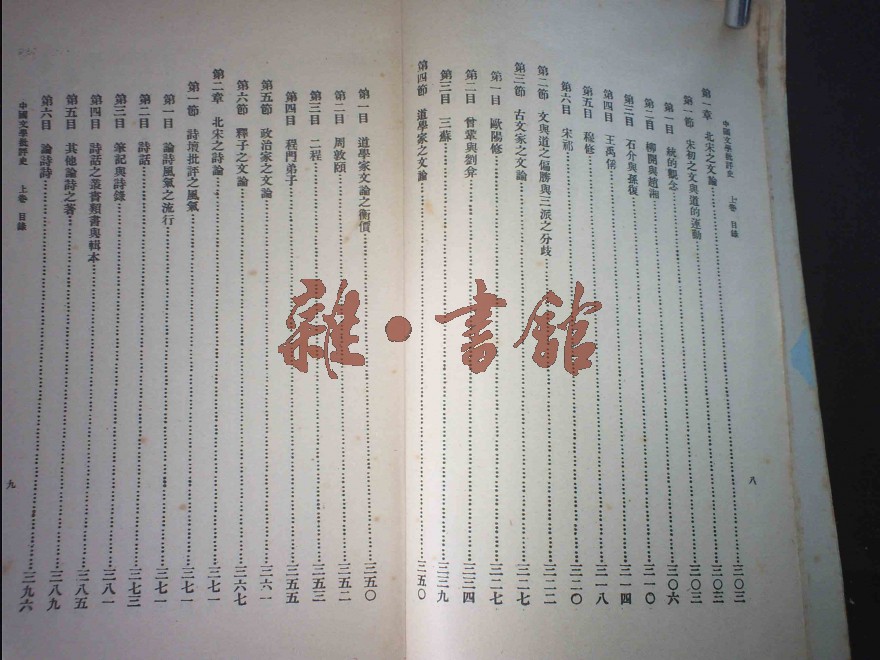 中國文學批評史　上卷　目錄
八
第一章　北宋之文論……三〇三
第一節　宋初之文與道的運動……三〇三
第一目　統的觀念……三〇六
第二目　柳開與趙湘……三一〇
第三目　石介與孫復……三一四
第四目　王禹偁……三一八
第五目　穆修
第六目　宋祁……三二〇
第二節　文與道之偏勝與三派之分歧……三二二
第三節　古文家之文論……三二七
第一目　歐陽修……三二七
第二目　曾鞏與劉弇……三三四
第三目　三蘇……三三九
第四節　道學家之文論……三五〇
第一目　道學家文論之衡價……三五〇
第二目　周敦頤……三五二
第三目　二程……三五三
第四目　程門弟子……三五五
第五節　政治家之文論……三六一
第六節　釋子之文論……三六七
第二章　北宋之詩論……三七一
第一節　詩壇批評之風氣……三七一
第一目　論詩風氣之流行……三七一
第二目　詩話……三七三
第三目　筆記與詩錄……三八一
第四目　詩話之叢書類書與輯本……三八五
第五目　其他論詩之著……三八九
第六目　論詩詩……三九六
中國文學批評史　上卷　目錄
九
雜·書館